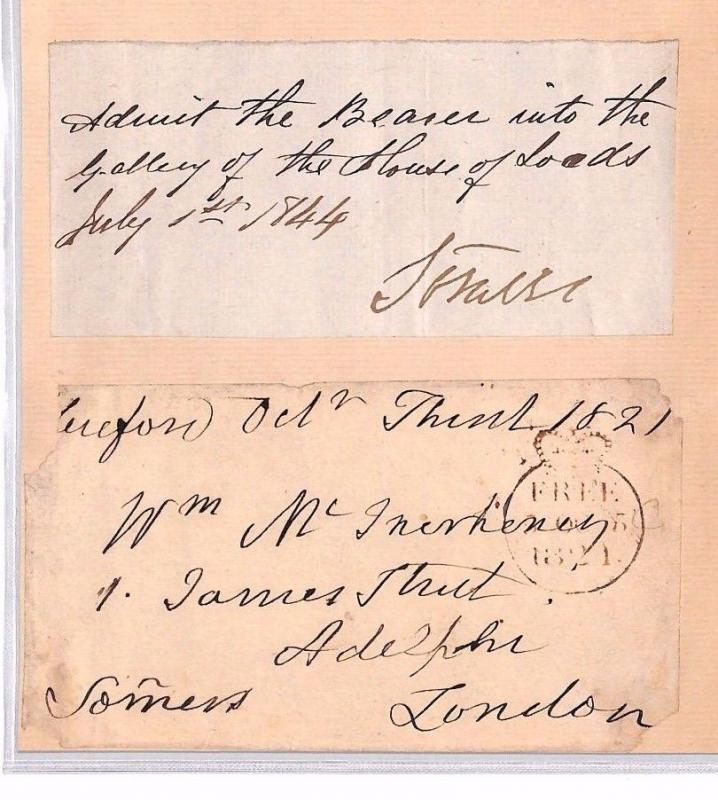 Admit the Bearer into the
Gallery of the House of Lords
July 1st 1844
Hereford Octr Third 1821
Wm Mc
FREE
1821.
1. James Street.
Adelphi
Somers London